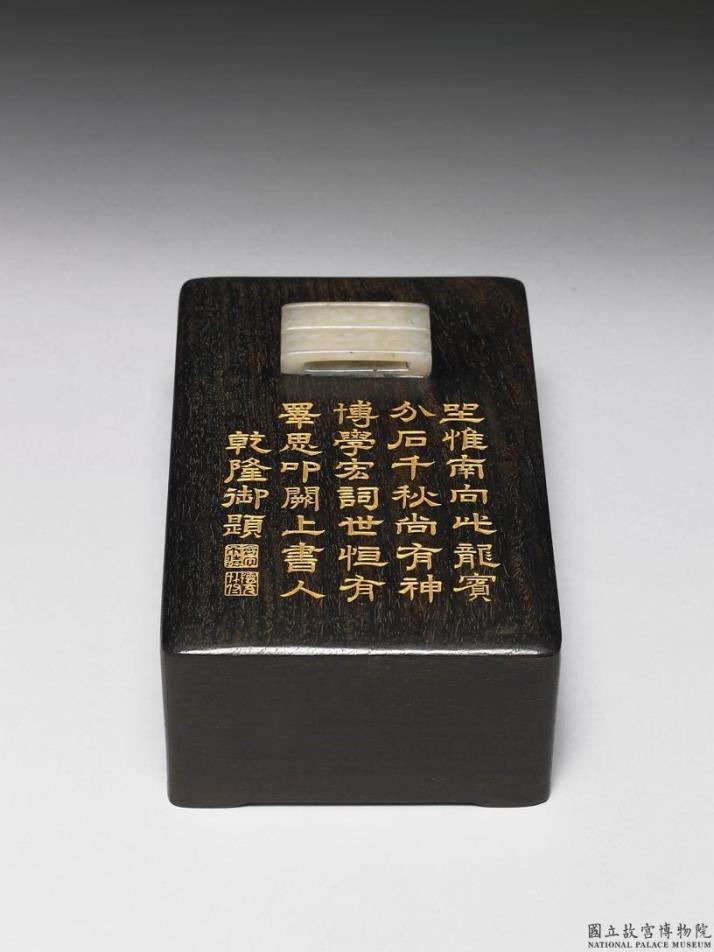 坐惟南向此龍賓
介石千秋尚有神
博學宏詞世恒有
睪思叩闕上書人
乾隆御題
國立故宮博物院
NATIONAL PALACE MUSEUM